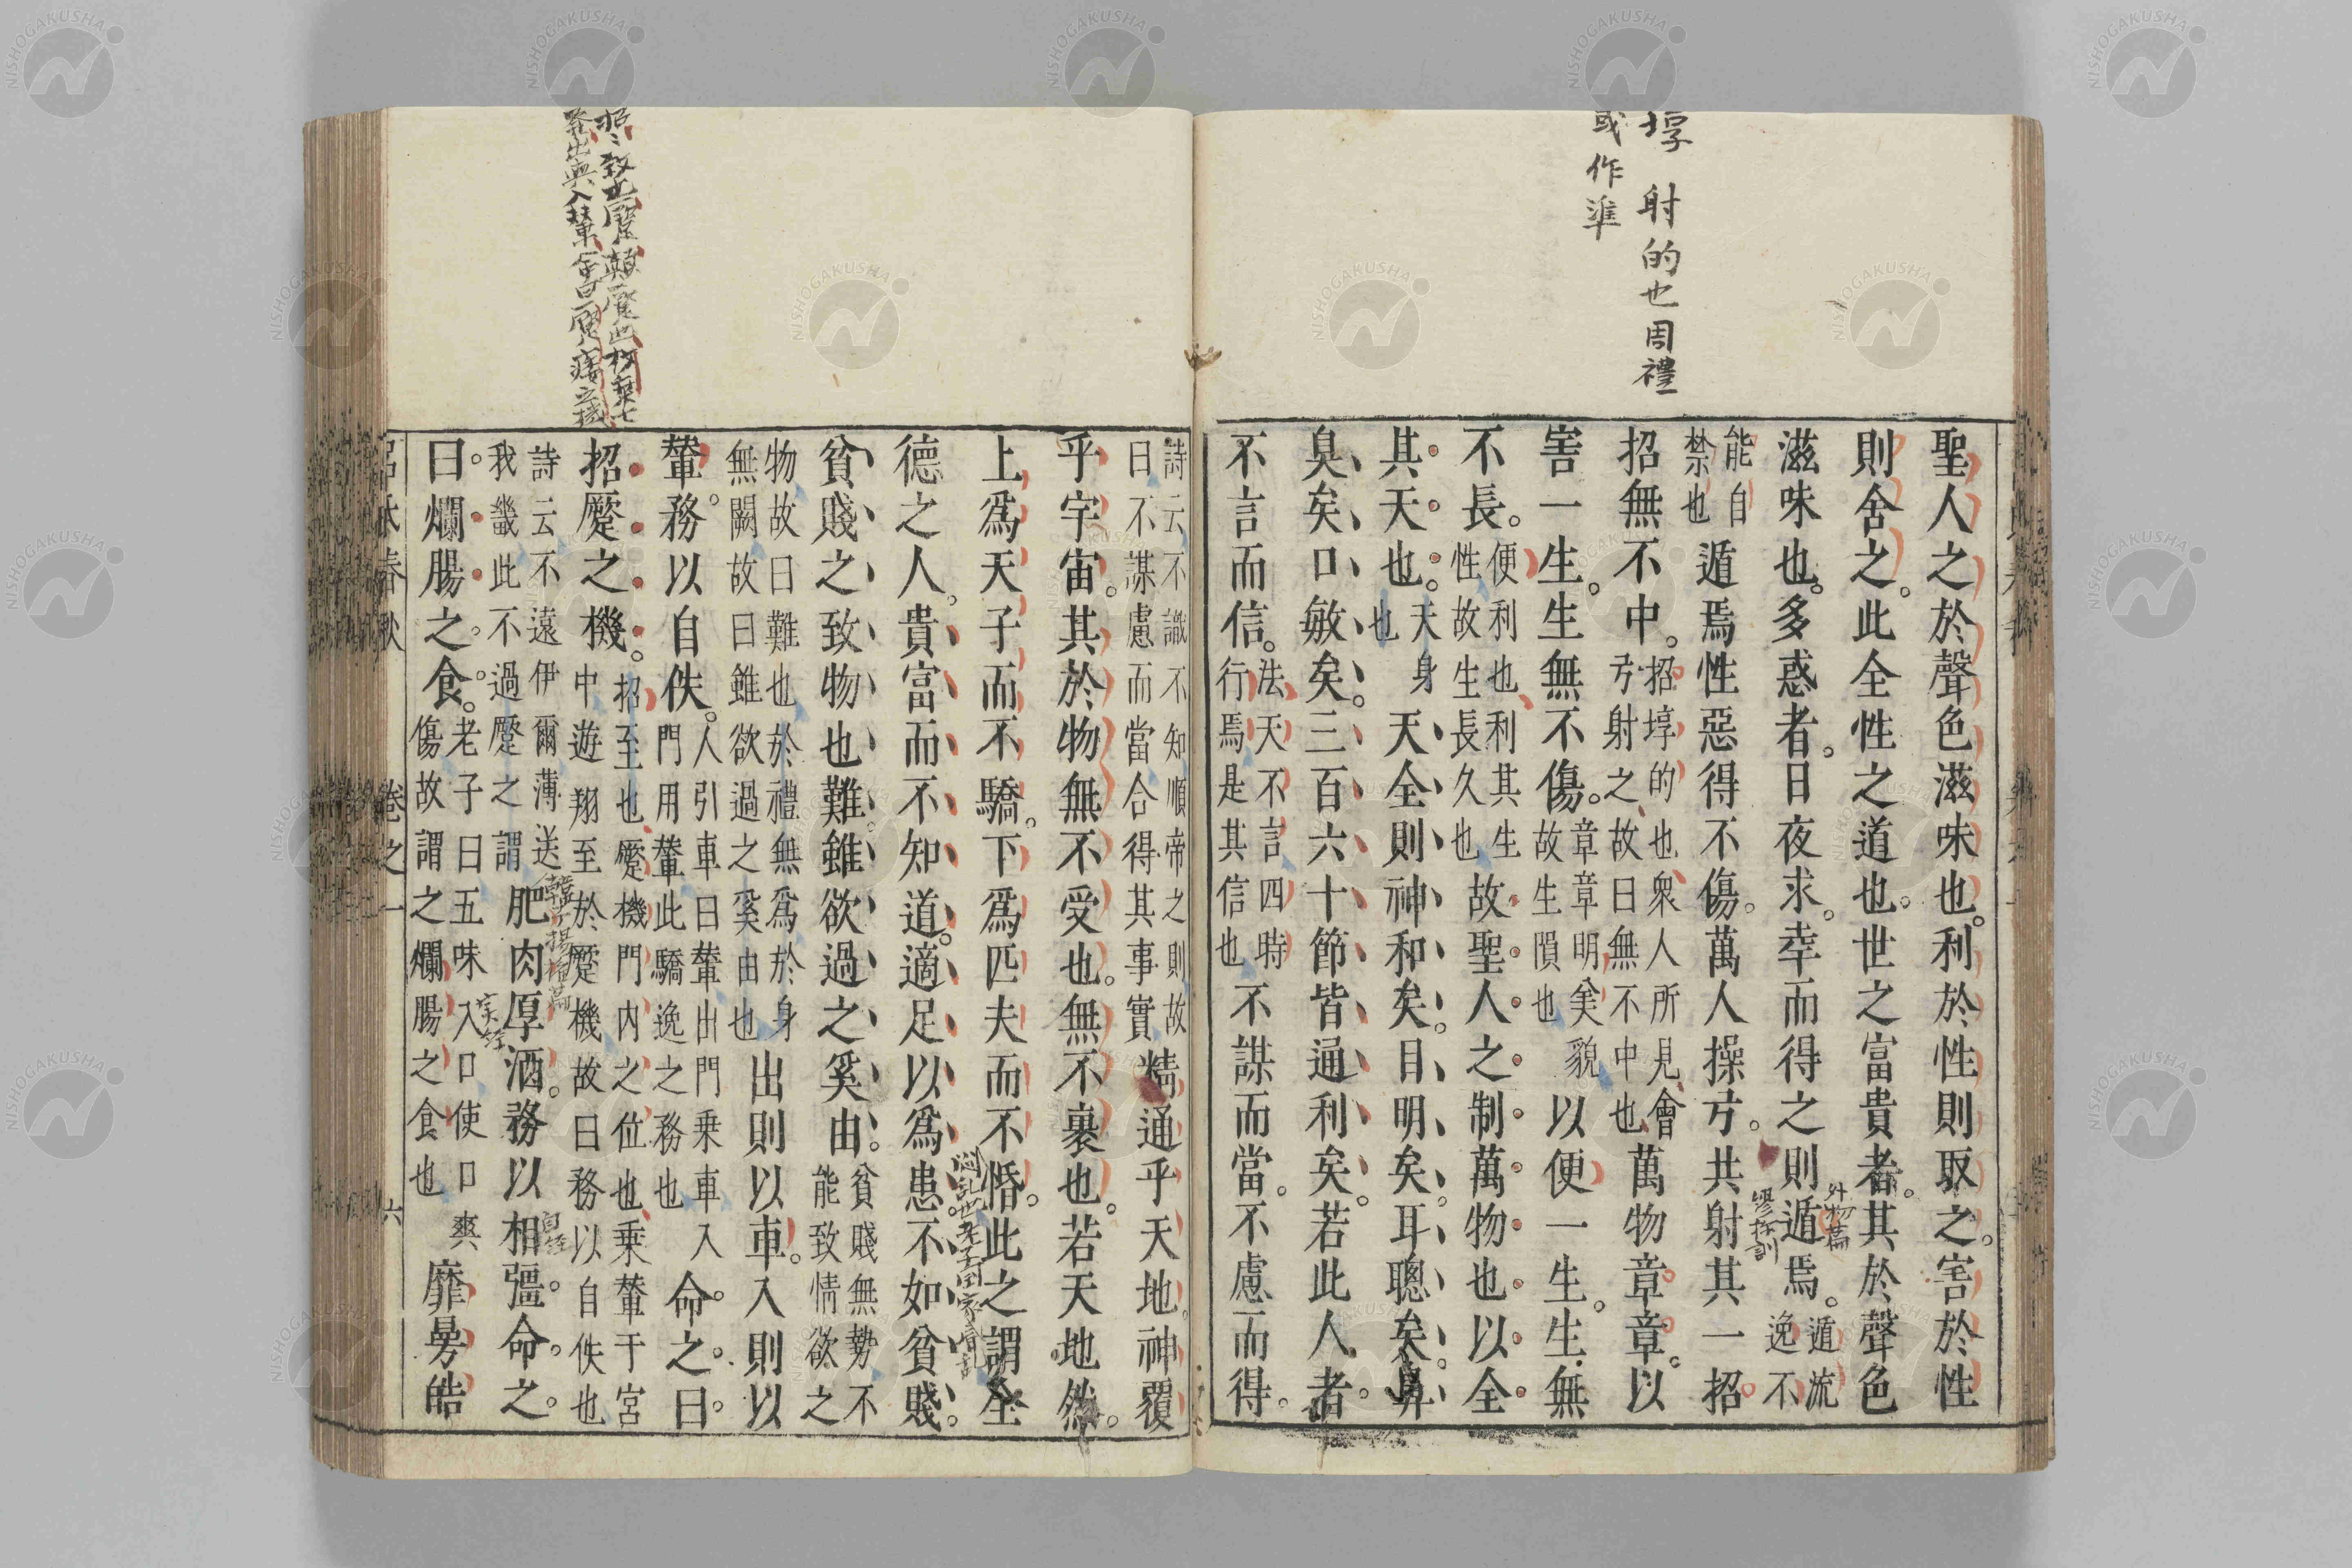 埻 射的也周禮
或作準
聖人之於聲色滋味也。利於性則取之。害於性
則舍之。此全性之道也。世之富貴者。其於聲色
滋味也。多惑者。日夜求。幸而得之則遁焉。遁流逸不
外物篇
能自禁也遁焉性惡得不傷。萬人操弓。共射其一招
繆称訓
招無不中。招埻的也衆人所見會弓射之故曰無不中也萬物章章。以
害一生。生無不傷。章章明美貌故生隕也以便一生。生無
不長。便利也利其生性故生長久也故聖人之制萬物也。以全
其天也。天身也天全則神和矣。目明矣。耳聰矣。鼻
臭矣。口敏矣。三百六十節皆通利矣。若此人者。
不言而信。法天不言四時行焉是其信也不謀而當。不慮而得。
詩云不識不知順帝之則故曰不謀慮而當合得其事實精通乎天地。神覆
乎宇宙。其於物無不受也。無不裹也。若天地然。
上爲天子而不驕。下爲匹夫而不惛。此之謂全
德之人。貴富而不知道。適足以爲患。不如貧賤。
貧賤之致物也難。雖欲過之奚由。貧賤無勢不能致情欲之
物故曰難也於禮無爲於身無闕故曰雖欲過之奚由也出則以車。入則以
輦。務以自佚。人引車曰輦出門乗車入門用輦此驕逸之務也命之。曰。
招蹷之機。招至也蹷機門內之位也乗輦于宮中遊翔至於蹷機故曰務以自佚也
詩云不遠伊爾薄送我畿此不過蹷之謂肥肉厚酒。務以相彊。命之。
韓子揚權篇
曰。爛腸之食。老子曰五味入口使口爽傷故謂之爛腸之食也靡曼皓
呂氏春秋 卷之一 六